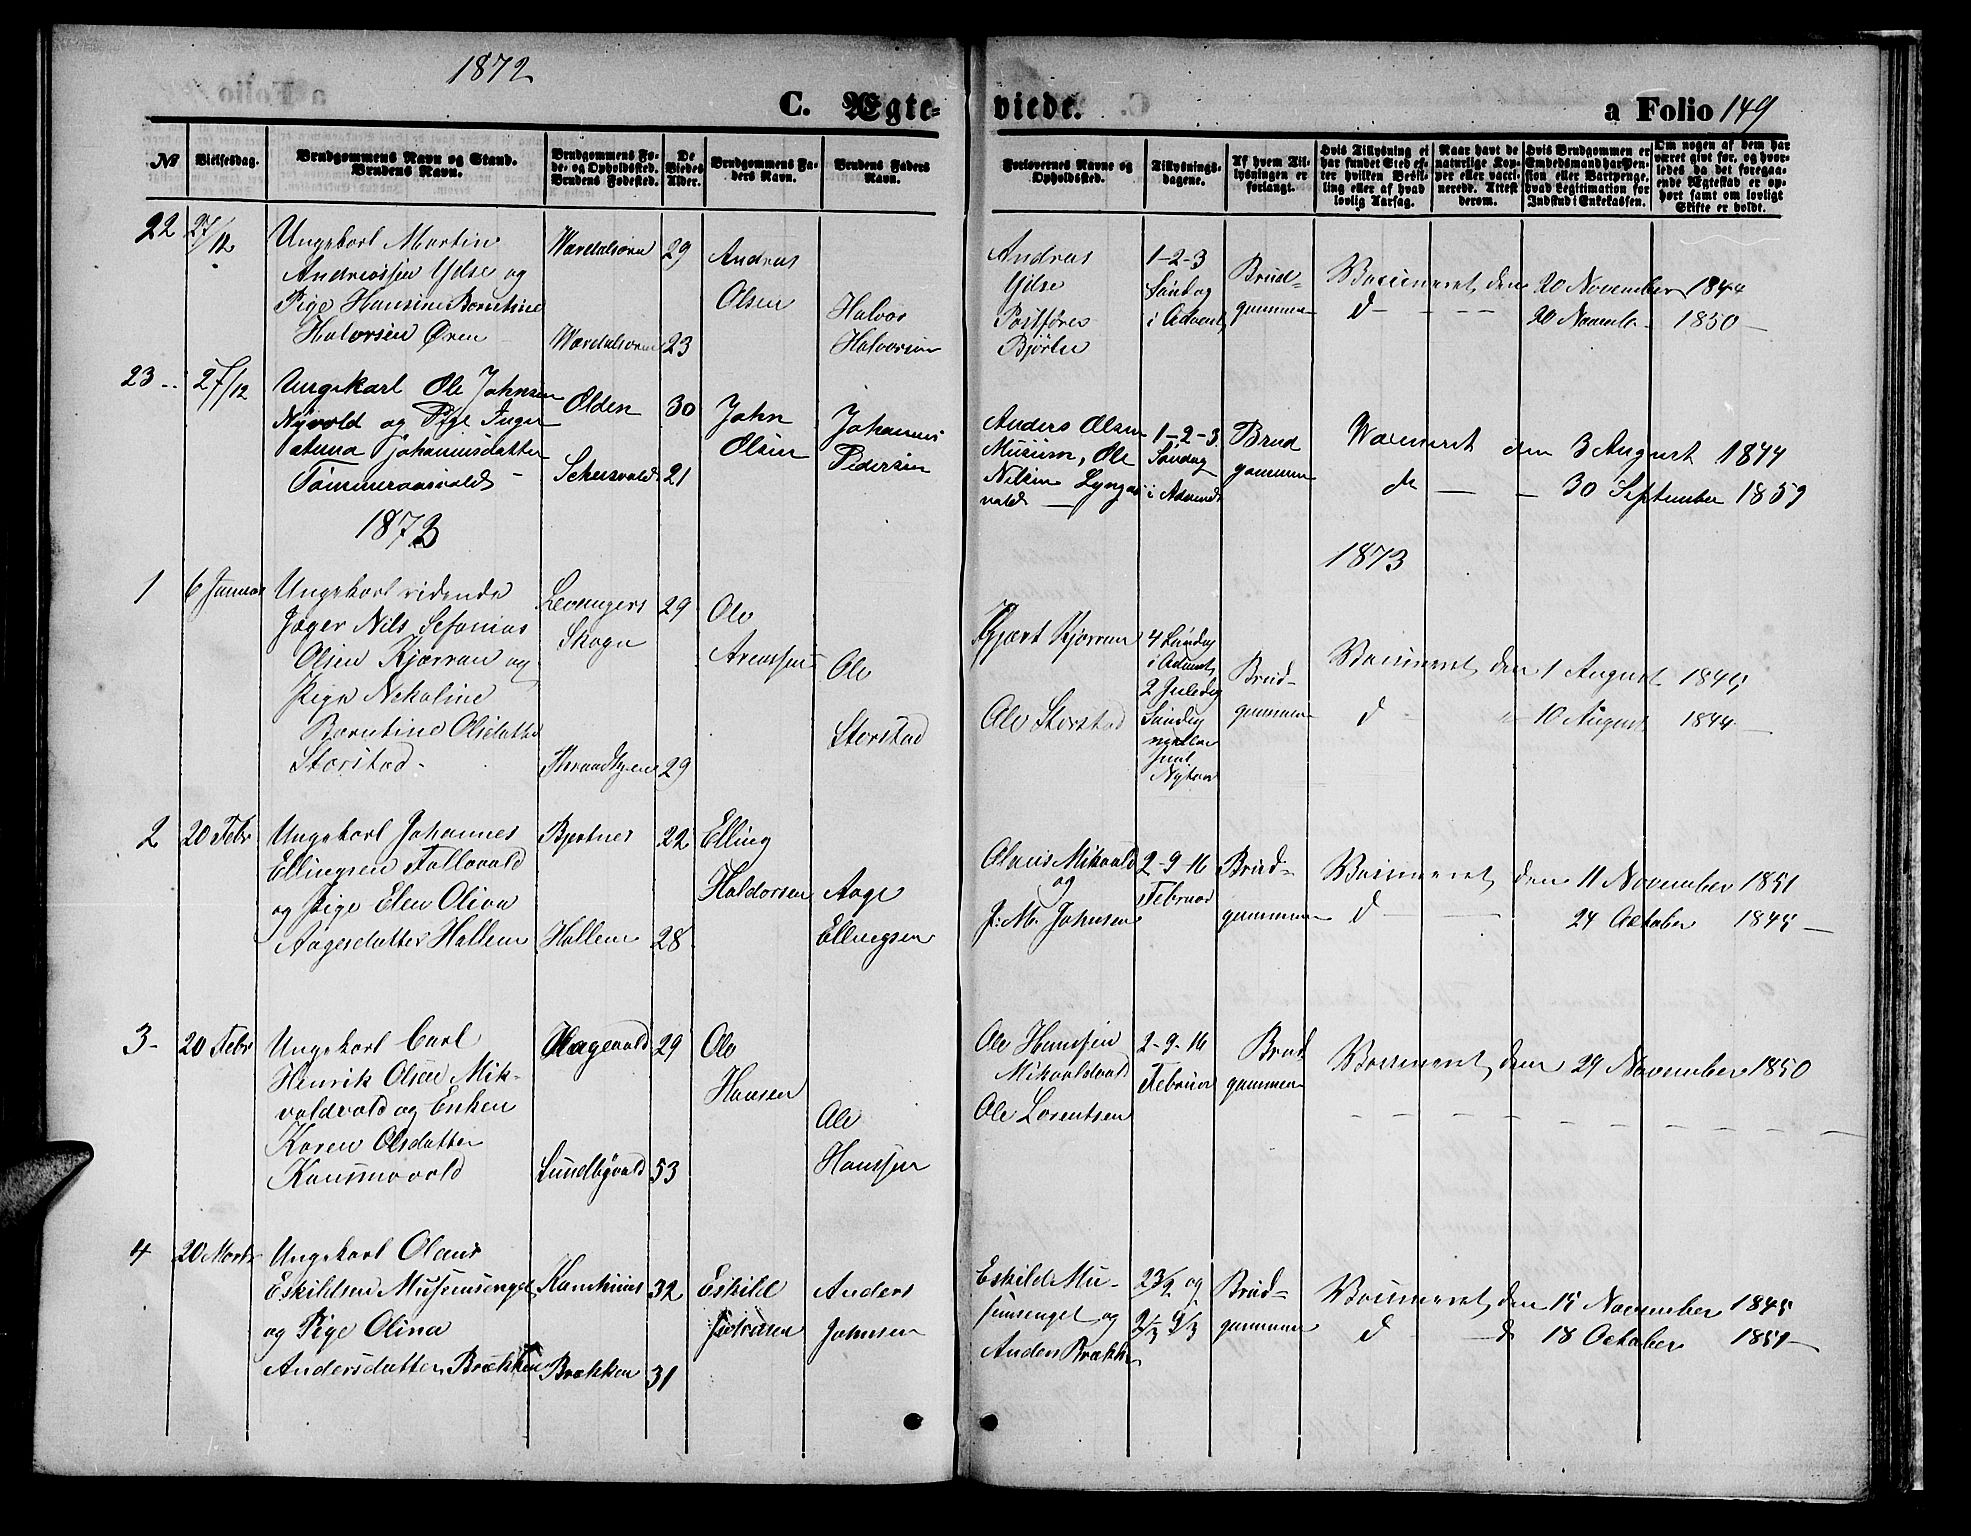 1872
C. Ægte-
viede.
a Folio 149
№
Vielsesdag.
Brudgommens Navn og Stand.
Brudens Navn.
Brudgommens Fø-
de- og Opholdssted.
Brudens Fødested.
De
Viedes
Alder.
Brudgommens Fa-
ders Navn.
Brudens Faders
Navn.
Forlovernes Navne og
Opholdssted.
Tillysnings-
dagene.
Af hvem Til-
lysningen er
forlangt.
Hvis Tillysning ei
har fundet Sted ef-
ter hvilken Bevil-
ling eller af hvad
lovlig Aarsag.
Naar havt de
naturlige Kop-
per eller vacci-
nerede. Attest
derom.
Hvis Brudgommen er
Embedsmand har Pen-
sion eller Vartpenge,
hvad Legitimation for
Indskud i Enkekassen.
Om nogen af dem har
været givt før, og hvor-
ledes da det foregaa-
ende Ægteskab er op-
hørt samt om lovligt
Skifte er holdt.
22 27/12
Ungekarl Martin
Andreassen Ydse og
Pige Hansine Berntine
Halvorsen Øren
Værdalsøren 29
Værdalsøren 23
Andreas
Olsen
Halvor
Halvorsen
Andreas
Ydse
Postfører
1-2-3
Søndag
i Advent
Brud-
gommen
Vaccineret den 20 November 1844
d - - - 20 Novemb. 1850 -
23 27/12
Ungekarl Ole Johnsen
Nyvold og Pige Inger
Johannisdatter
Tømmeraasvald
Olden 30
21
John
Olsen
Johannes
Pedersen
Anders Olsen
Musum, Ole
Nilsen Lyng-
vald
1-2-3
Søndag
i Advent
Brud
gommen
Vaccineret den 3 August 1844
do - - 30 September 1851
1873
1873
1 6 Januar
Ungekarl ridende
Jæger Nils Sefanias
Olsen Kjærran og
Pige Nekoline
Berntine Olsdatter
Storstad
Levangers
Skogn 29
29
Ole
Arentsen
Ole
Storstad
Kjærran
Ole Storstad
4 Søndag
i Advent
2 Juledag
Søndag
mellem
Jul
Nytaar
Brud-
gommen
Vaccineret den 1 August 1845
d - 10 August 1844 -
2 20 Febr
Ungekarl Johannes
Ellingsen Fallovald
og Pige Elen Oliva
Aagesdatter Hallem
Bjertnes 22
Hallem 28
Elling
Haldorsen
Aage
Ellingsen
Olaus Mikvold
og
J. M. Johnsen
2-9-16
Februar
Brud-
gommen
Vaccineret den 11 November 1851
d - - 24 October 1845 -
3- 20 Febr
Ungekarl Carl
Henrik Olsen Mik-
voldvald og Enken
Karen Olsdatter
Kausmovald
Hagavald 29
Sundbyvald 53
Ole
Hansen
Ole
Hanssen
Ole Hanssen
Mikvoldvald
Ole Lorentsen
2-9-16
Februar
Brud
gommen
Vaccineret den 29 November 1850
4 20 Marts
Ungekarl Olaus
Eskildsen Musumsenget
og Pige Olina
Andersdatter Brækken
32
Brækken 31
Eskild
Anders
Johnsen
Eskild Mu-
sumsenget og
Anders Brækken
23/2 og
2/3 9/3
Brud-
gommen
Vaccineret den 15 November 1845
d - - d 18 October 1851 -